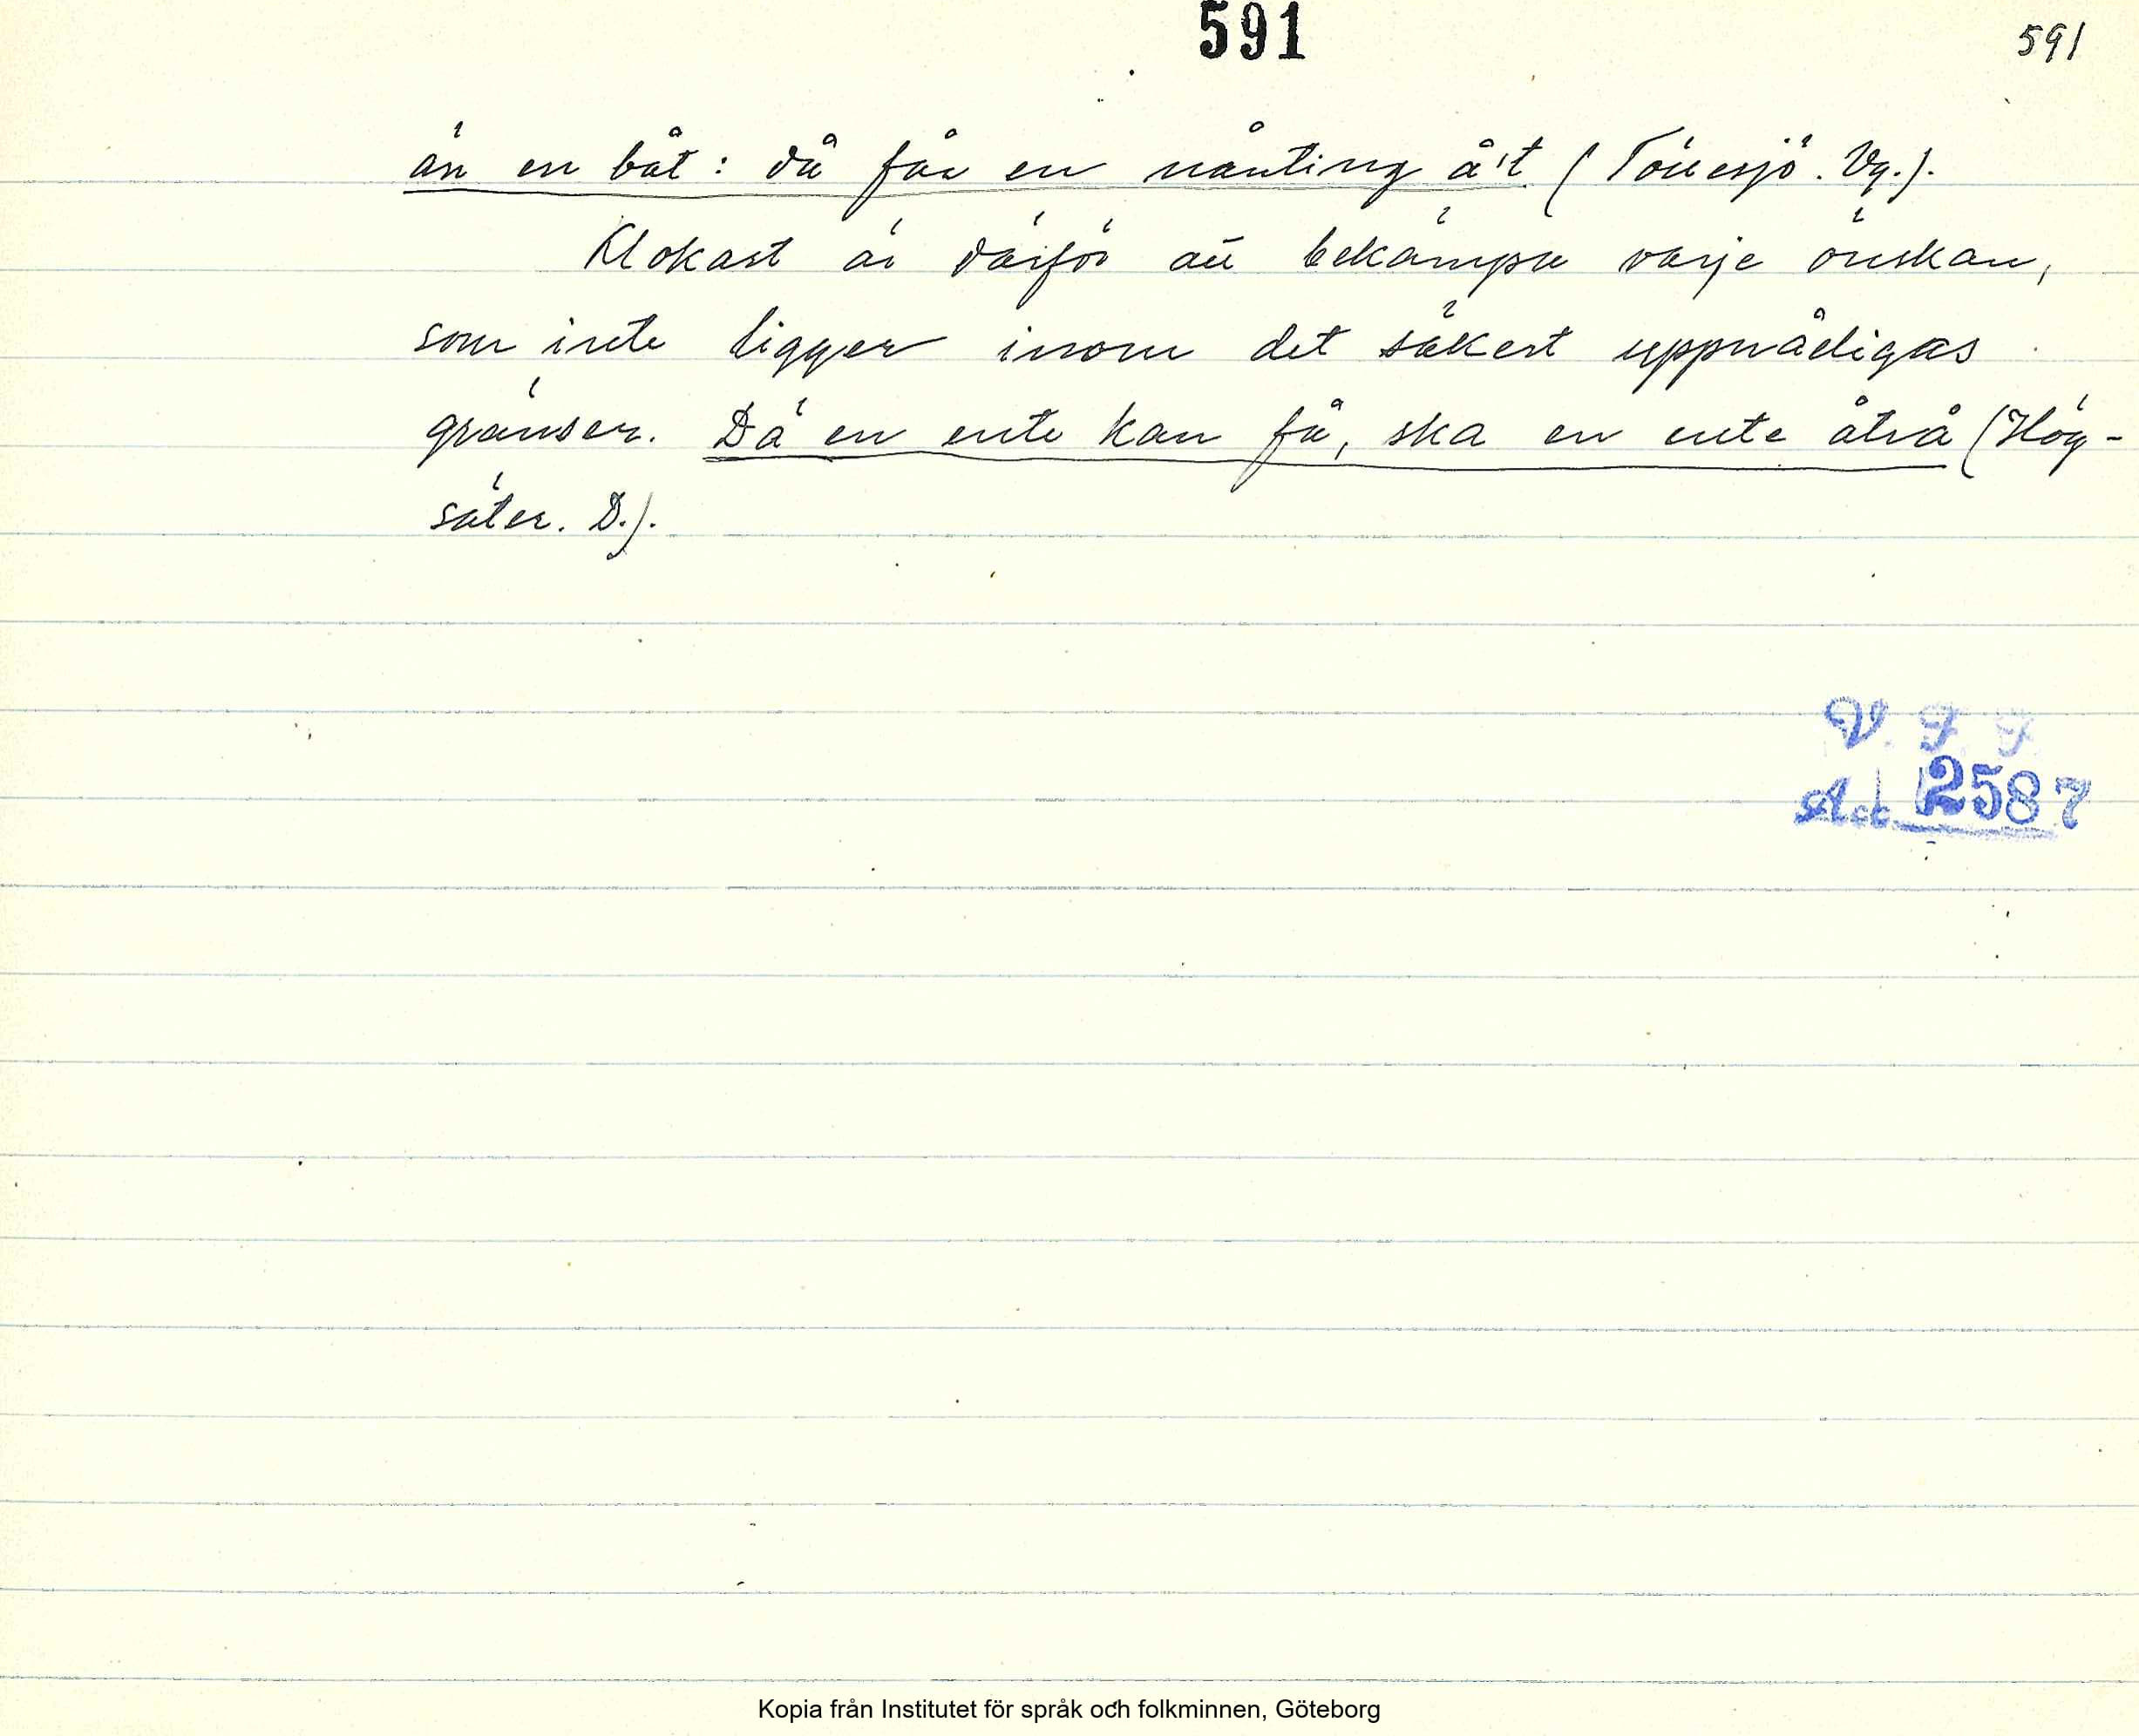 591
591
än en båt: då får en nånting å't (Töllesjö. Vg.).
Klokast är därför att bekämpa varje önskan,
som inte ligger inom det säkert uppnåeligas
gränser. Dä en ente kan få, ska en ente åtrå (Hög-
säter. D.).
V. F. F.
Act. 2587
Kopia från Institutet för språk och folkminnen, Göteborg